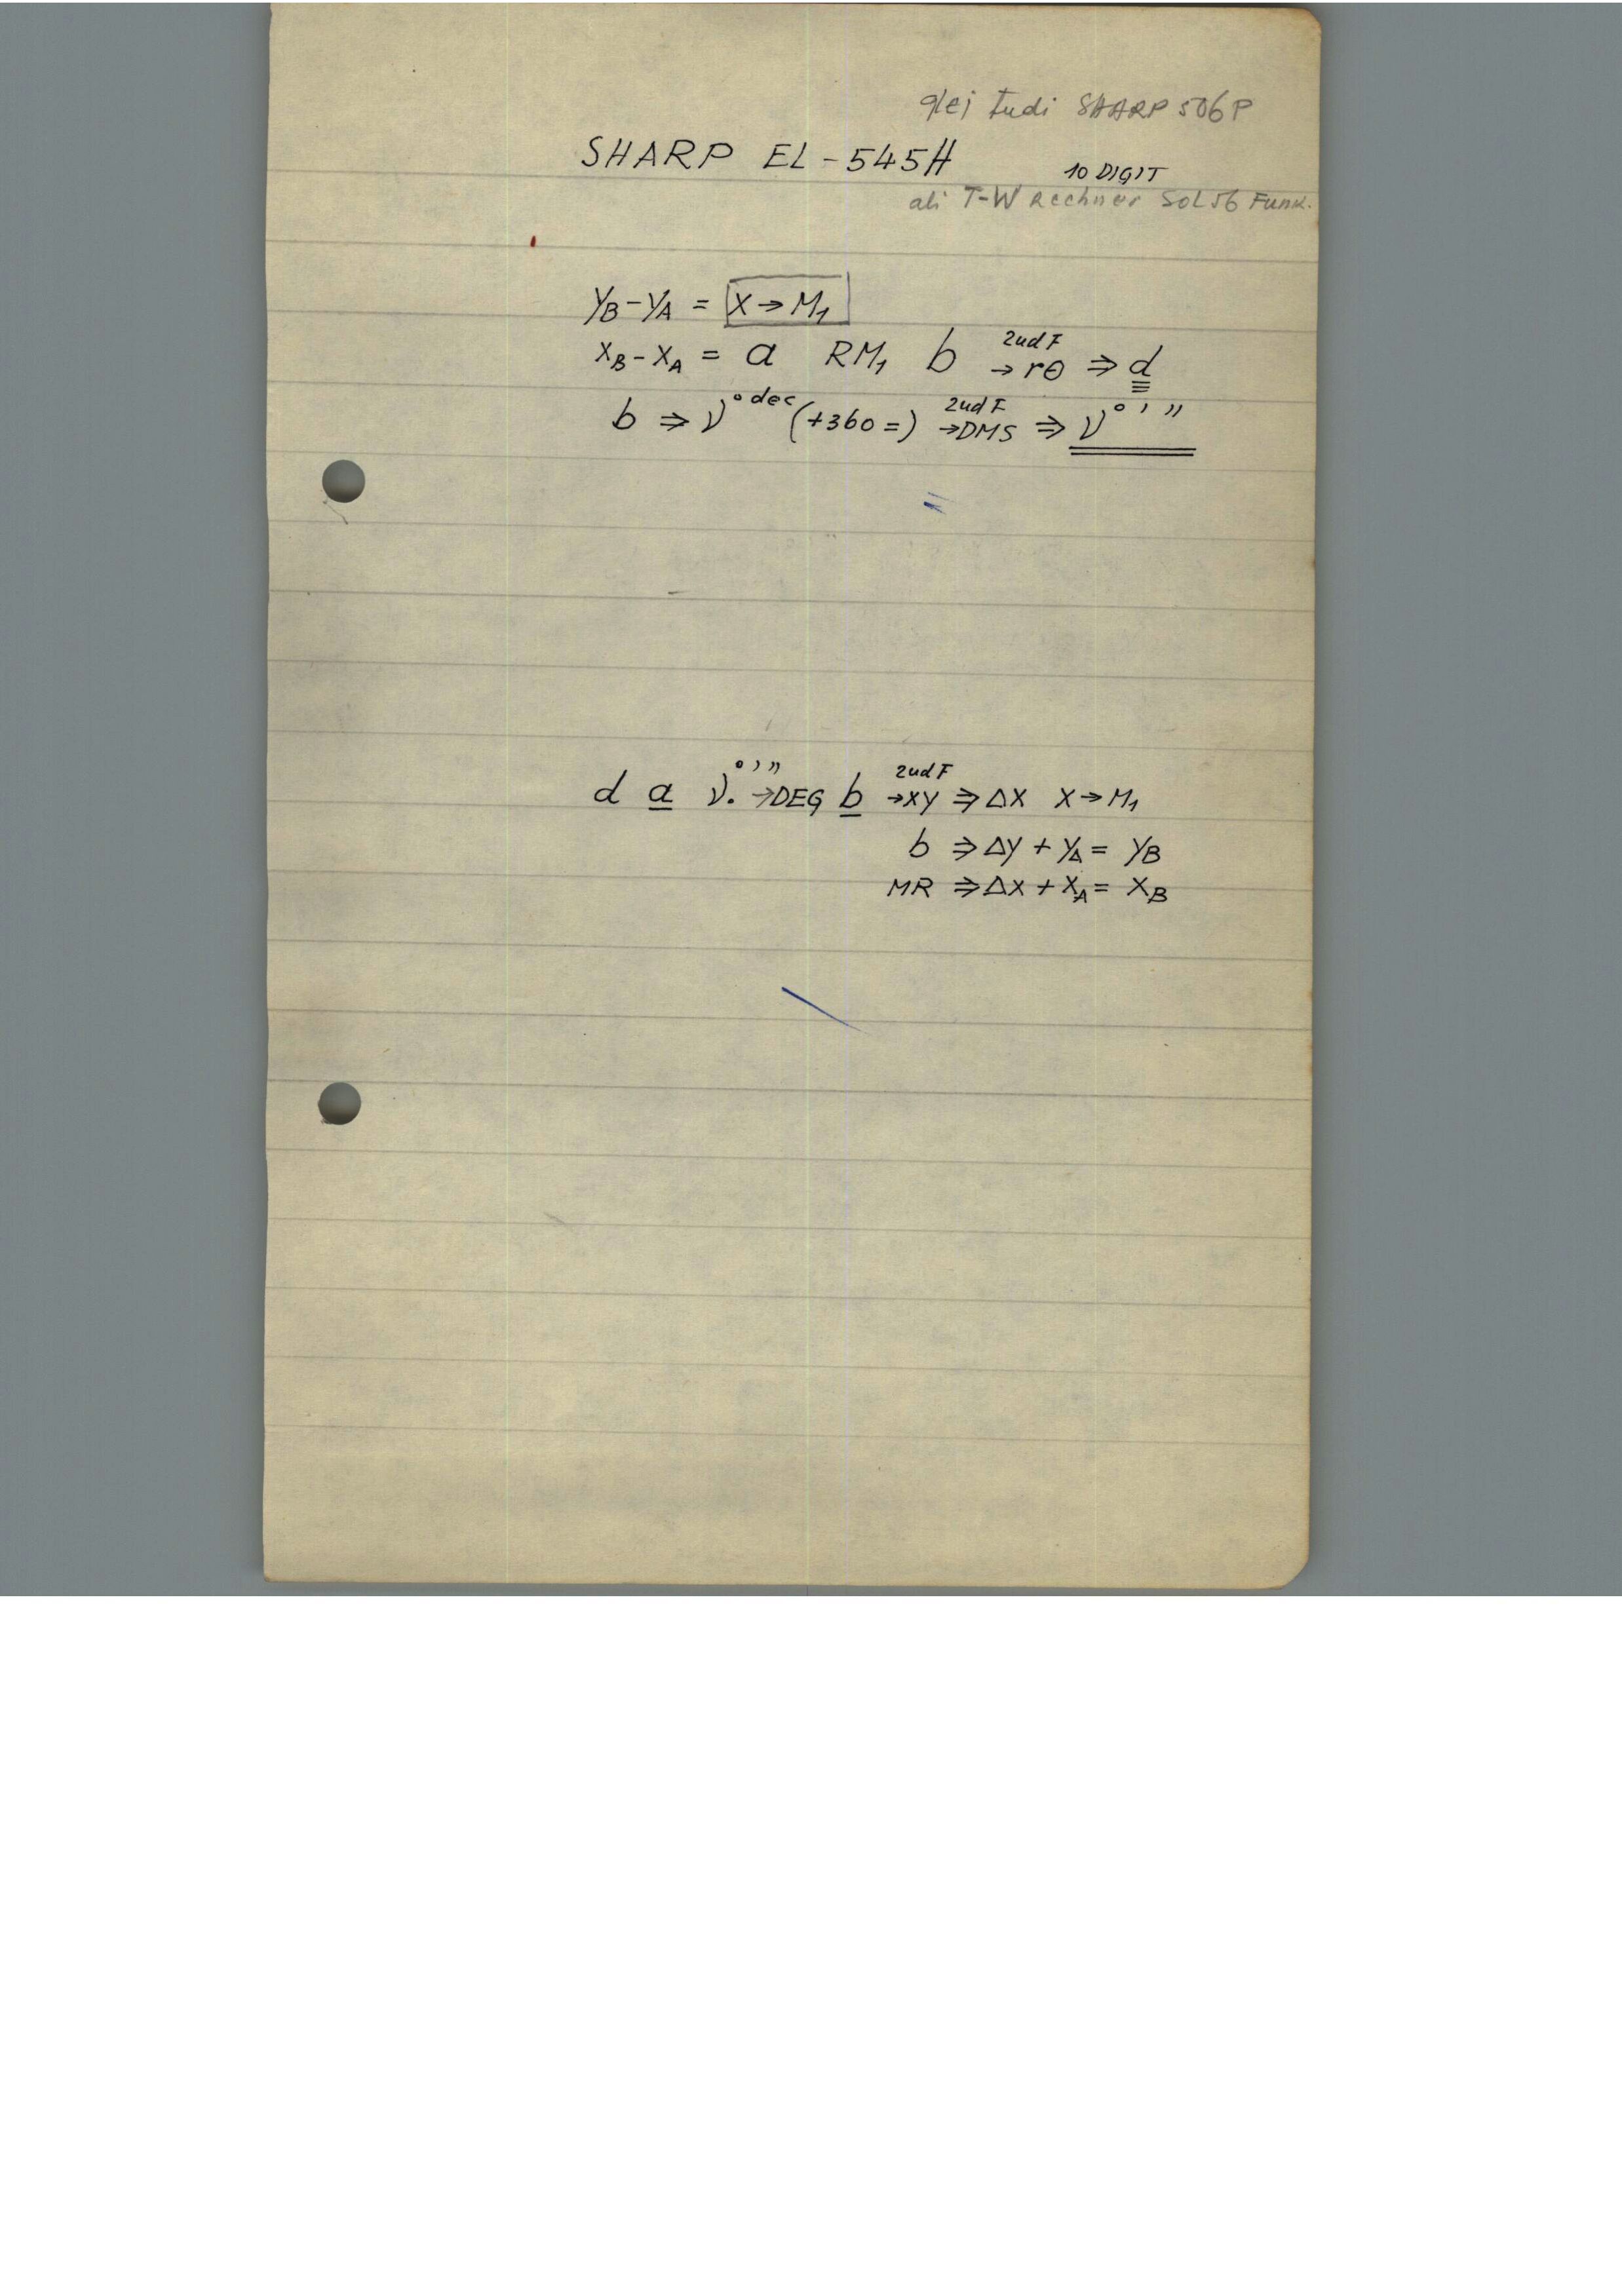 glej tudi SHARP 506P
SHARP EL-545H 10 DIGIT
ali T-W Rechner SOL 56 Funk.
yB-yA = X→M1
xB-xA = a RM1 b 2ndF →rθ ⇒ d
b ⇒ ν° dec (+360=) 2ndF →DMS ⇒ ν° ' "
d a ν° ' ". →DEG b 2ndF →xy ⇒ Δx X→M1
b ⇒ Δy + yA = yB
MR ⇒ Δx + xA = xB